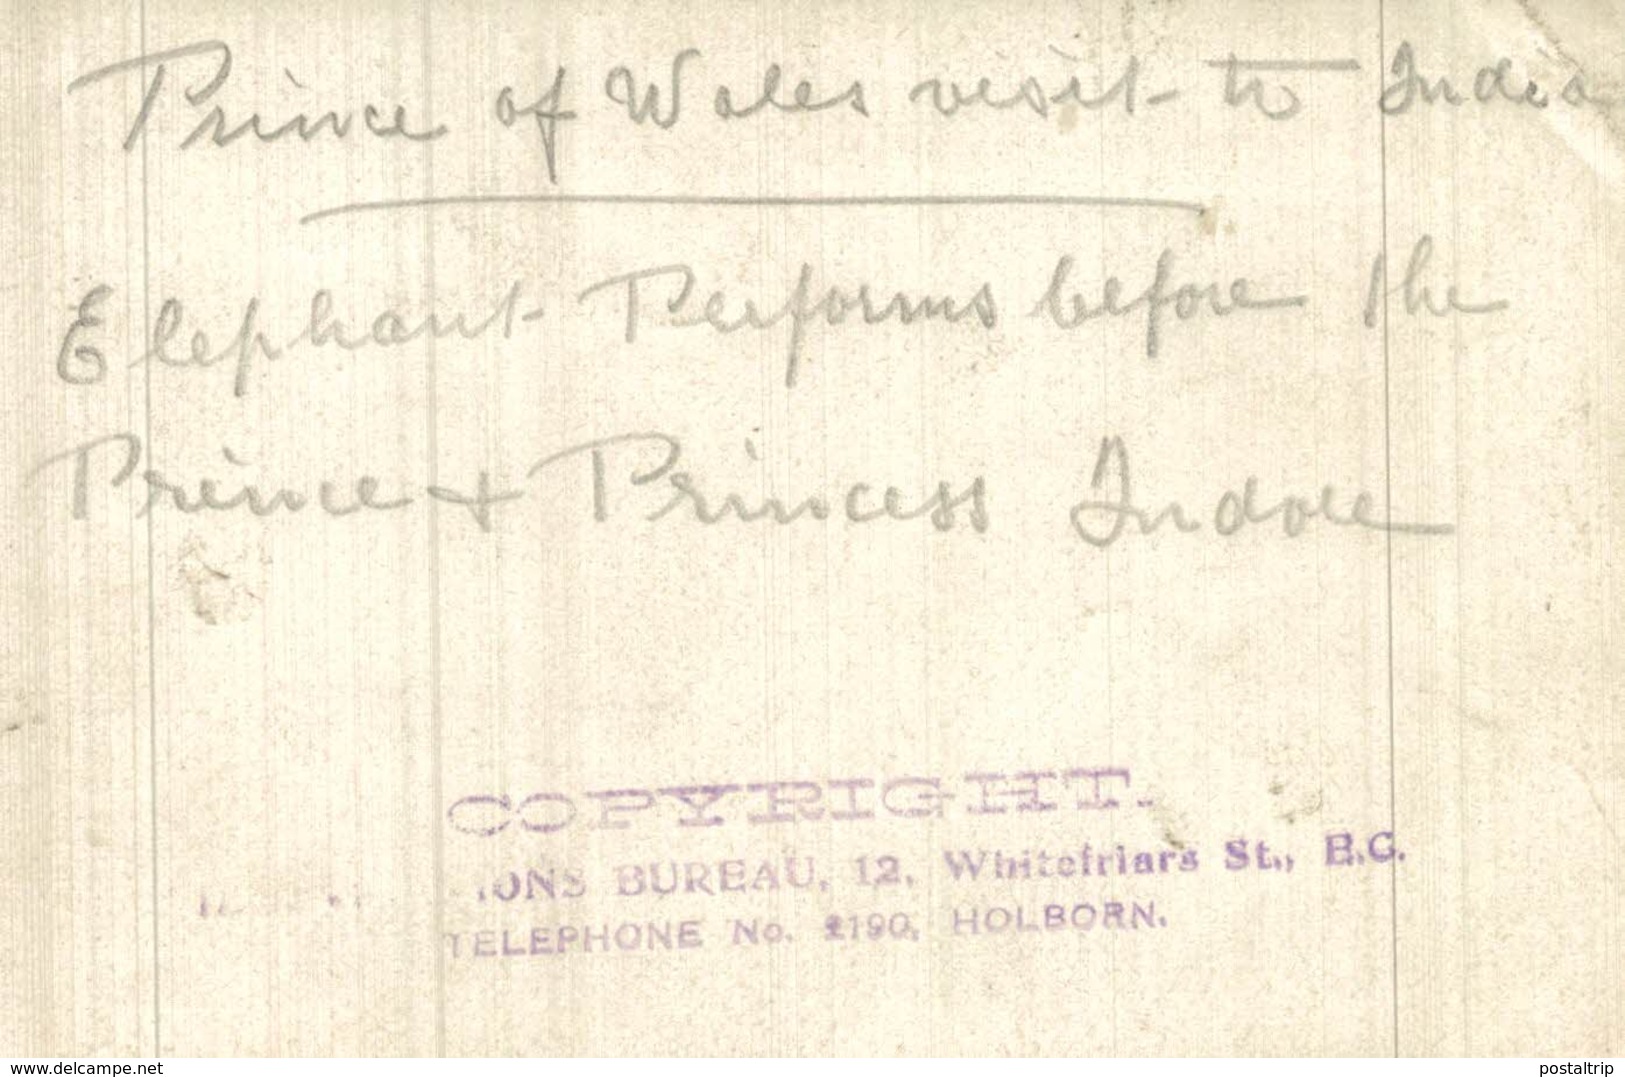 Prince of Wales visit to India
Elephant Performs before the
Prince & Princess Indore
COPYRIGHT.
BUREAU, 12, Whitefriars St., E.C.
TELEPHONE No. 2190, HOLBORN.
www.delcampe.net
postaltrip